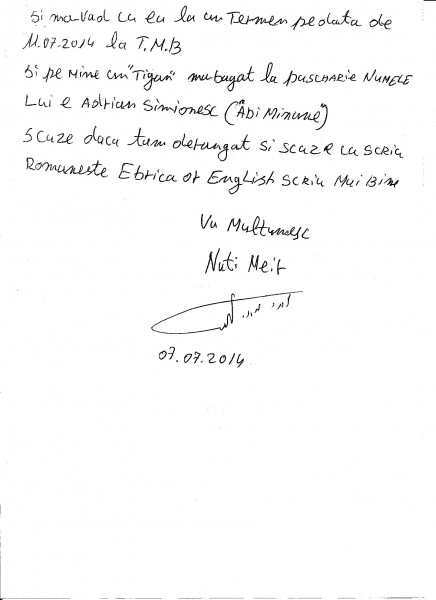 Si ma-vad cu ea la un Termen pe data de
11.07.2014 la T.M.B
Si pe Mine un "Tigan" ma bagat la puscharie NUMELE
Lui e Adrian Simionesc ("Adi Minune")
Scuze daca tam derangat si scuze ca scriu
Romaneste Ebrica or English scriu Mui Bine
Va Multumesc
Nuti Meir
07.07.2014